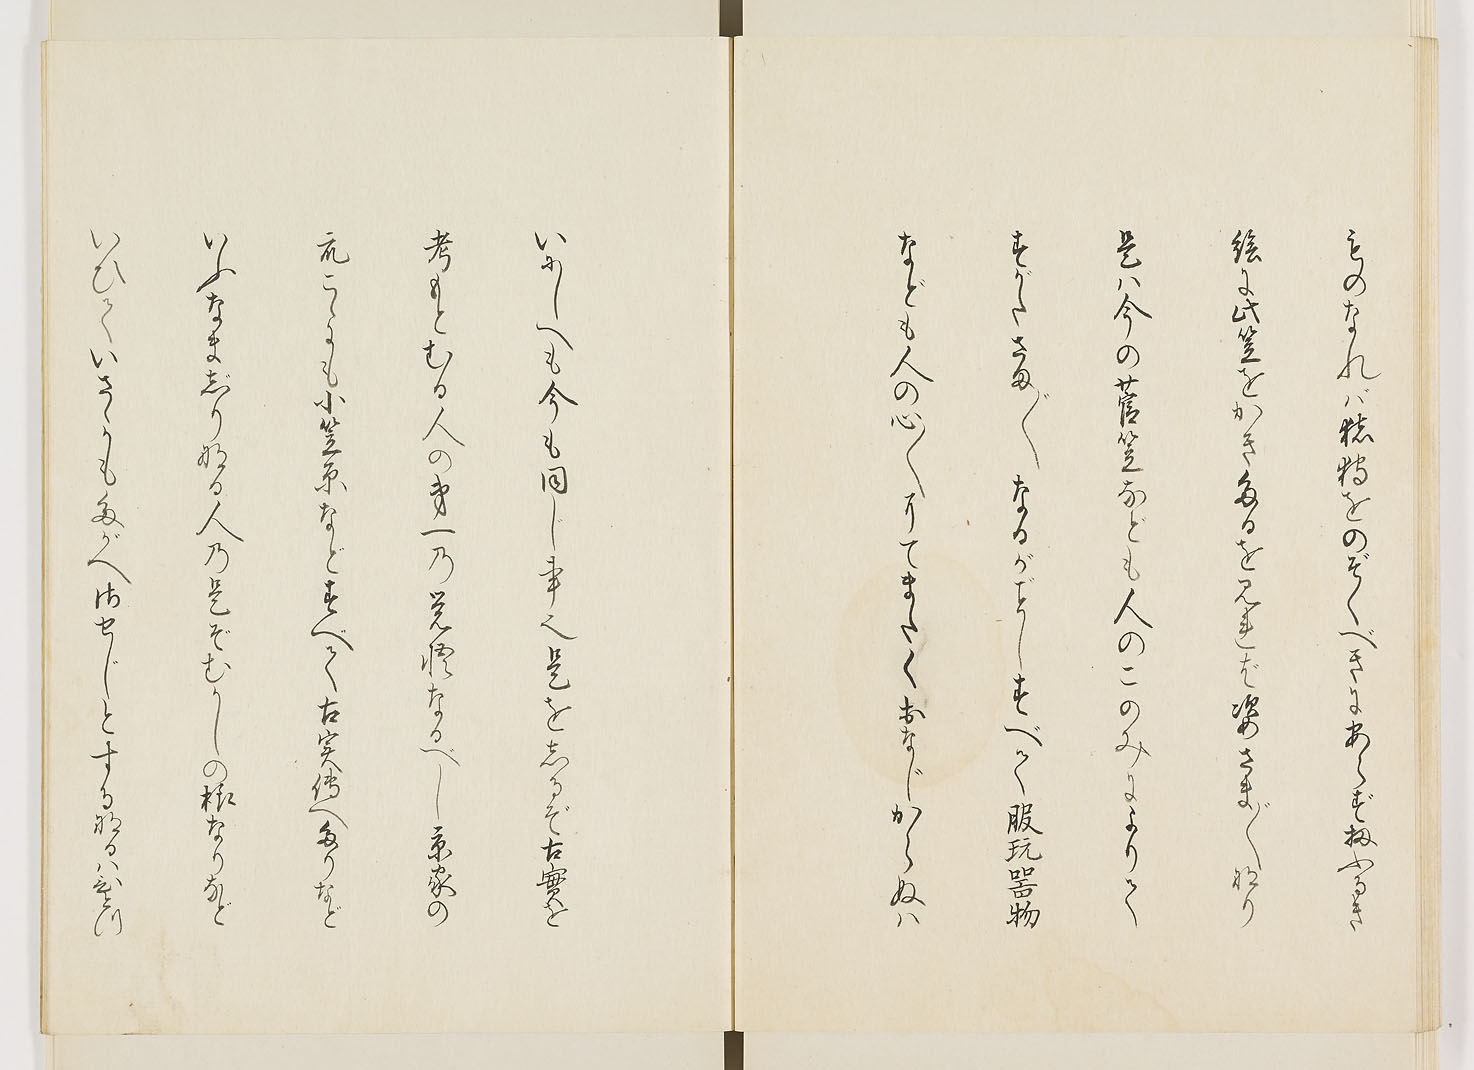 ものなればをのぞくべきにあらず扨ふるき
絵に此笠をかきたるを見れば姿さま〲なり
是ハ今の菅笠なども人のこのみによりて
すがたさま〲なるがごとしすべて服玩器物
なども人の心〱にてまたくおなじからぬハ
いにしへも今も同じ事也是をしるぞ古實を
考もとむる人の第一の覚悟なるべし京家の
流にも小笠原などすべて古実伝へたりなど
いふなまじりなる人の是ぞむかしの様なりなど
いひていさゝかもたがへはせじとするなるハ